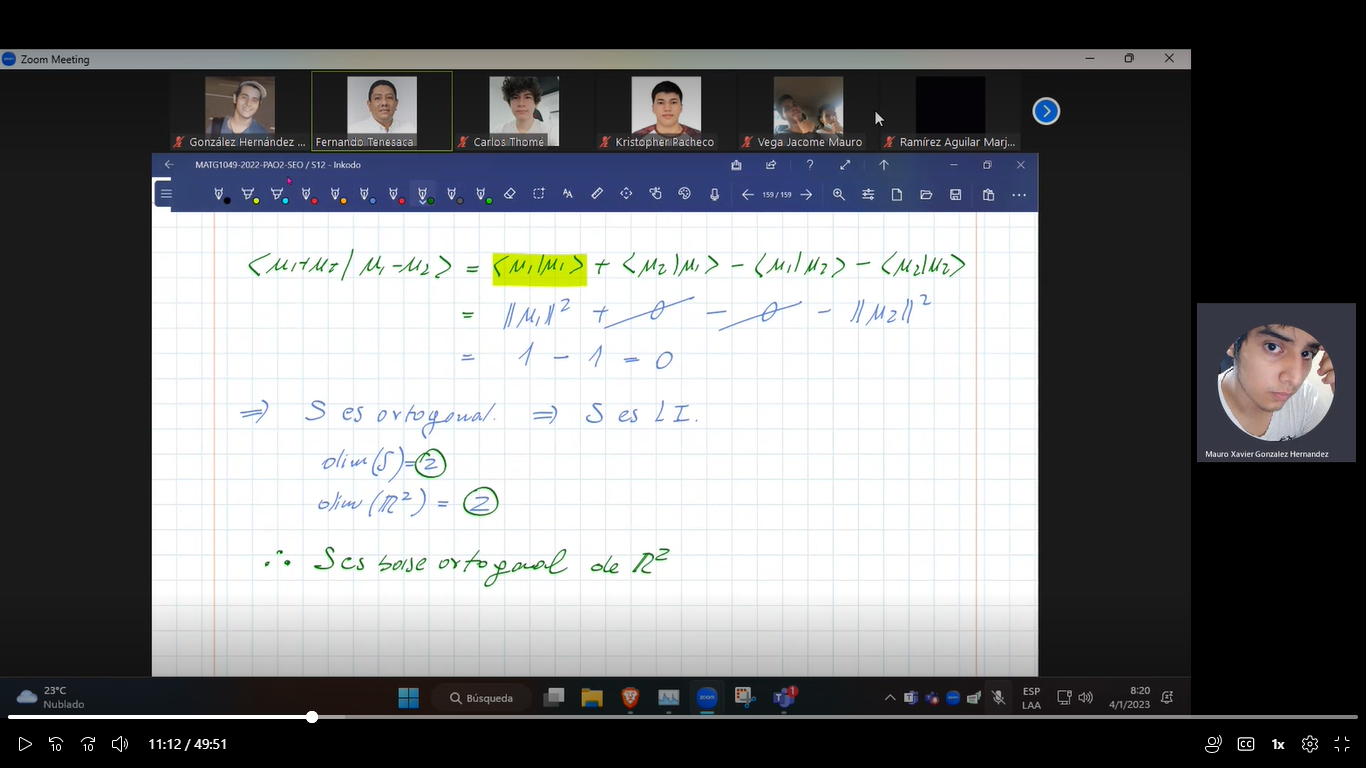 Zoom Meeting
González Hernández ...
Fernando Tenesaca
Carlos Thomé
Kristopher Pacheco
Vega Jacome Mauro
Ramírez Aguilar Marj...
MATG1049-2022-PAO2-SEO / S12 - Inkodo
159 / 159
<μ₁+μ₂ | μ₁-μ₂> = <μ₁|μ₁> + <μ₂|μ₁> - <μ₁|μ₂> - <μ₂|μ₂>
= ‖μ₁‖² + 0 - 0 - ‖μ₂‖²
= 1 - 1 = 0
⇒ S es ortogonal. ⇒ S es LI.
dim(S)=2
dim(ℝ²) = 2
∴ S es base ortogonal de ℝ²
Mauro Xavier Gonzalez Hernandez
23°C
Nublado
Búsqueda
1
ESP
LAA
8:20
4/1/2023
10
10
11:12 / 49:51
CC
1x